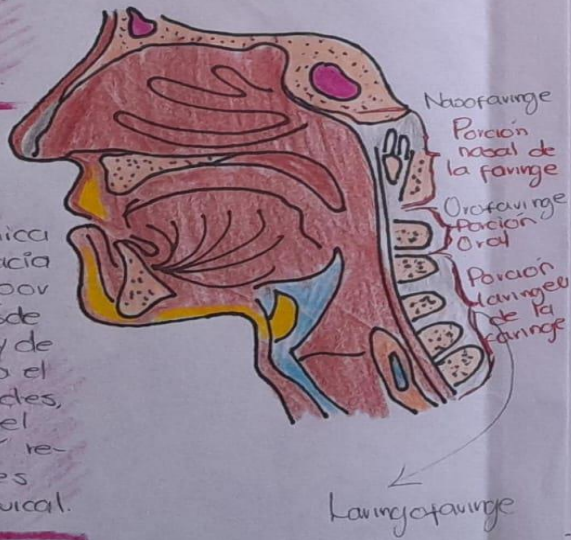 ica
acia
por
sde
y de
o el
des,
el
re-
es
vical.
Nasofaringe
Porción
nasal de
la faringe
Orofaringe
Porción
Oral
Porción
laringea
de la
faringe
Laringofaringe